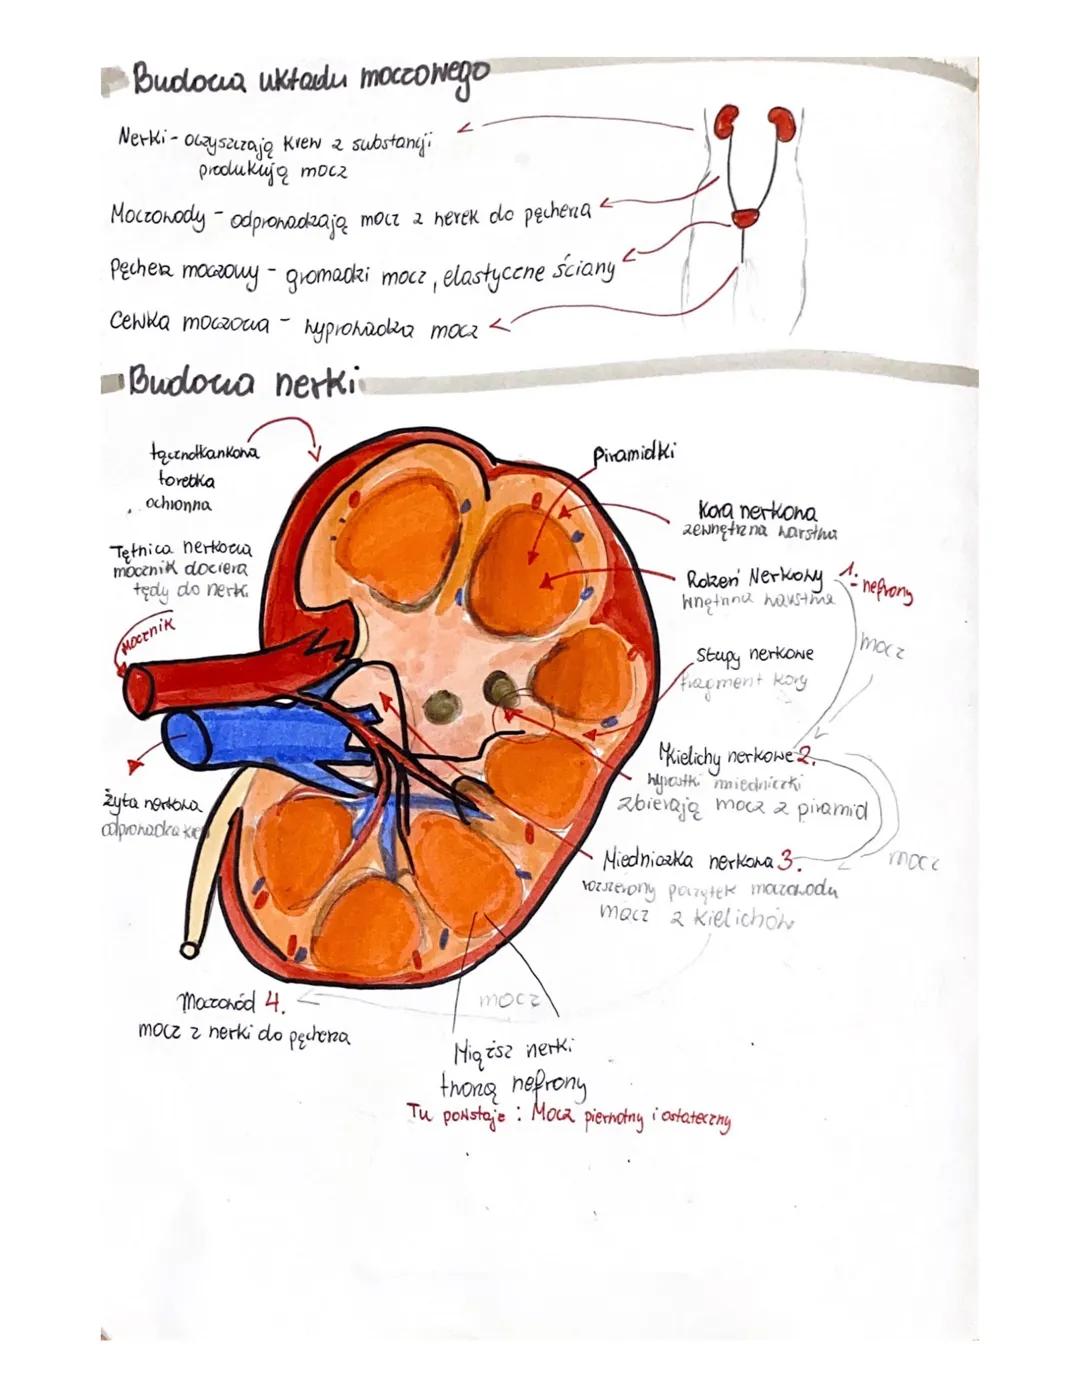 Budowa układu moczowego
Nerki - oczyszczają krew z substancji
produkują mocz
Moczowody - odprowadzają mocz z nerek do pęcherza
Pęcherz moczowy - gromadzi mocz, elastyczne ściany
Cewka moczowa - wyprowadza mocz
Budowa nerki
łącznotkankowa
torebka
ochronna
Tętnica nerkowa
mocznik dociera
tędy do nerki
mocznik
Żyła nerkowa
odprowadza
Moczowód 4.
mocz z nerki do pęcherza
Piramidki
Kora nerkowa
zewnętrzna warstwa
Rdzeń Nerkowy
wnętrzna warstwa
1. - nefrony
mocz
Słupy nerkowe
fragment kory
Kielichy nerkowe 2.
wypustki miedniczki
zbierają mocz z piramid
mocz
Miedniczka nerkowa 3.
rozszerony początek moczowodu
mocz z kielichów
mocz
Miąższ nerki
tworzą nefrony
Tu powstaje : Mocz pierwotny i ostateczny